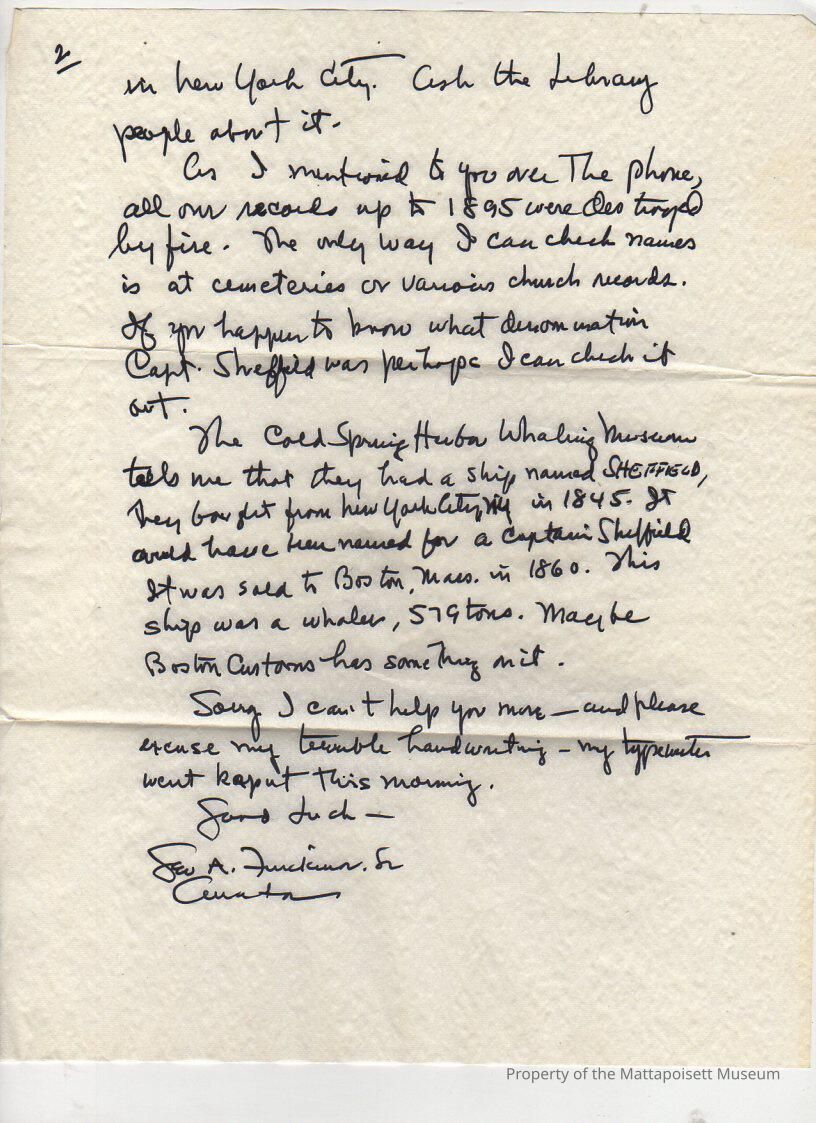 2
in New York City. Ask the Library
people about it.
As I mentioned to you over The phone,
all our records up to 1895 were destroyed
by fire. The only way I can check names
is at cemeteries or various church records.
If you happen to know what denomination
Capt. Sheffield was perhaps I can check it
out.
The Cold Spring Harbor Whaling Museum
tells me that they had a ship named SHEFFIELD,
they bought from New York City, NY in 1845. It
could have been named for a Captain Sheffield
It was sold to Boston, Mass. in 1860. This
ship was a whaler, 579 tons. Maybe
Boston Customs has something on it.
Sorry I can't help you more — and please
excuse my terrible handwriting – my typewriter
went kaput this morning.
Good Luck —
Geo A. Sr
Curator
Property of the Mattapoisett Museum